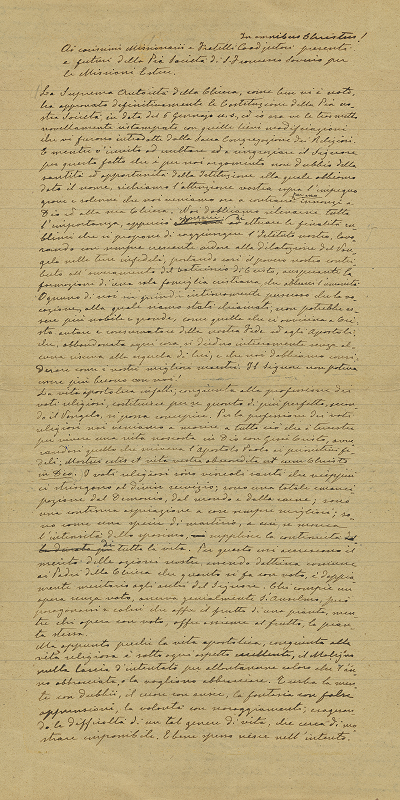 In omnibus Christus!
Ai carissimi Missionari e Fratelli Coadjutori presenti
e futuri della Pia Società di S. Francesco Saverio per
le Missioni Estere.
La Suprema Autorità della Chiesa, come ben vi è noto,
ha approvato definitivamente le Costituzioni della Pia no-
stra Società, in data del 6 Gennajo u.s., ed io ora ve le trasmetto
novellamente ristampate con quelle lievi modificazioni
che vi furono introdotte dalla Sacra Congregazione dei Religiosi.
E mentre v'invito ad esultare ed a ringraziare il Signore
per questo fatto che è per noi argomento non dubbio della
santità ed opportunità della Istituzione alla quale abbiamo
dato il nome, richiamo l'attenzione vostra sopra l'impegno
grave e solenne che noi veniamo ora a contrarre innanzi a
Dio ed alla sua Chiesa. Noi dobbiamo rilevarne tutta
l'importanza, apparecchiarci ad attuare le finalità su-
blimi che si propone di raggiungere l'Istituto nostro, lavo-
rando con sempre crescente ardore alla dilatazione del Van-
gelo nelle terre infedeli, portando così il povero nostro contri-
buto all'avveramento del vaticinio di Cristo, auspicante la
formazione di una sola famiglia cristiana, che abbracci l'umanità.
Ognuno di noi sia quindi intimamente persuaso che la vo-
cazione, alla quale siamo stati chiamati, non potrebbe es-
sere più nobile e grande, come quella che ci avvicina a Cri-
sto autore e consumatore della nostra Fede ed agli Apostoli,
che, abbandonata ogni cosa, si diedero interamente senza al-
cuna riserva alla sequela di lui, e che noi dobbiamo consi-
derare come i nostri migliori maestri. Il Signore non poteva
essere più buono con noi!
La vita apostolica infatti, congiunta alla professione dei
voti religiosi, costituisce per se quanto di più perfetto, secon-
do il Vangelo, si possa concepire. Per la professione dei voti
religiosi noi veniamo a morire a tutto ciò che è terrestre
per vivere una vita nascosta in Dio con Gesù Cristo, avve-
randosi quello che scriveva l'Apostolo Paolo ai primitivi fe-
deli: Mortui estis et vita vestra abscondita est cum Christo
in Deo. I voti religiosi sono vincoli santi che vieppiù
ci stringono al divino servizio; sono una totale emanci-
pazione dal Demonio, dal mondo e dalla carne; sono
una continua aspirazione a cose sempre migliori; so-
no come una specie di martirio, a cui se manca
l'intensità dello spasimo, supplisce la continuità
di tutta la vita. Per questo essi accrescono il
merito delle azioni nostre, essendo dottrina comune
ai Padri della Chiesa che quanto si fa con voto, è doppia-
mente meritorio agli occhi del Signore. Chi compie un'
opera senza voto, scrive genialmente S. Anselmo, può
paragonarsi a colui che offre il frutto di una pianta, men-
tre chi opera con voto, offre assieme al frutto, la pian-
ta stessa.
Ma appunto perchè la vita apostolica, congiunta alla
vita religiosa è sotto ogni aspetto eccellente, il Maligno
nulla lascia d'intentato per allontanarne coloro che l'han-
no abbracciata o la vogliono abbracciare. E turba la men-
te con dubbii, il cuore con ansie, la fantasia con false
apprensioni, la volontà con scoraggiamenti; esageran-
do le difficoltà di un tal genere di vita, che cerca di mo-
strare impossibile. E bene spesso riesce nell'intento.